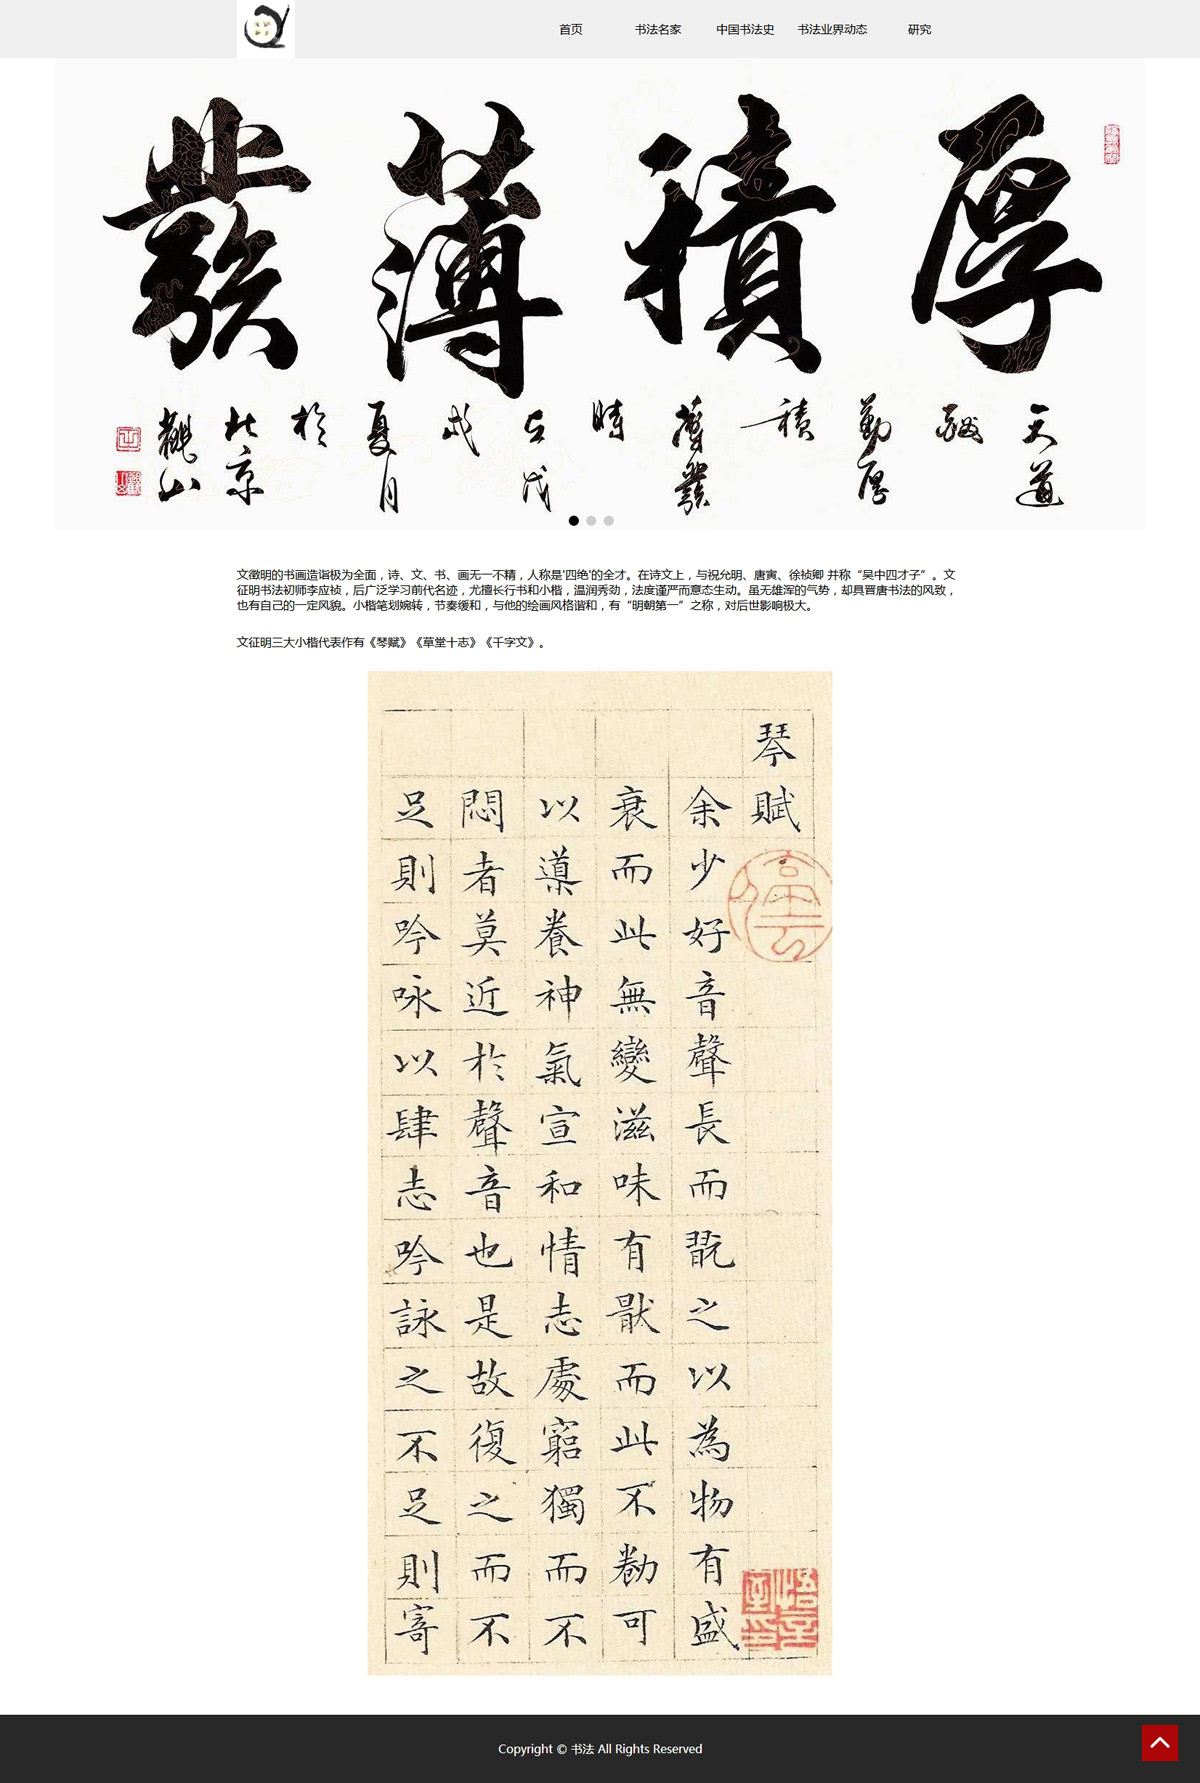 首页 书法名家 中国书法史 书法业界动态 研究
厚積薄發
天道
酬
勤厚
積
薄發
時
在
戊
戌
夏月
於
北京
文徵明的书画造诣极为全面，诗、文、书、画无一不精，人称是'四绝'的全才。在诗文上，与祝允明、唐寅、徐祯卿 并称“吴中四才子”。文
征明书法初师李应祯，后广泛学习前代名迹，尤擅长行书和小楷，温润秀劲，法度谨严而意态生动。虽无雄浑的气势，却具晋唐书法的风致，
也有自己的一定风貌。小楷笔划婉转，节奏缓和，与他的绘画风格谐和，有“明朝第一”之称，对后世影响极大。
文征明三大小楷代表作有《琴赋》《草堂十志》《千字文》。
琴賦
余少好音聲長而翫之以為物有盛
衰而此無變滋味有猒而此不勌可
以導養神氣宣和情志處窮獨而不
悶者莫近於聲音也是故復之而不
足則吟咏以肆志吟詠之不足則寄
Copyright © 书法 All Rights Reserved